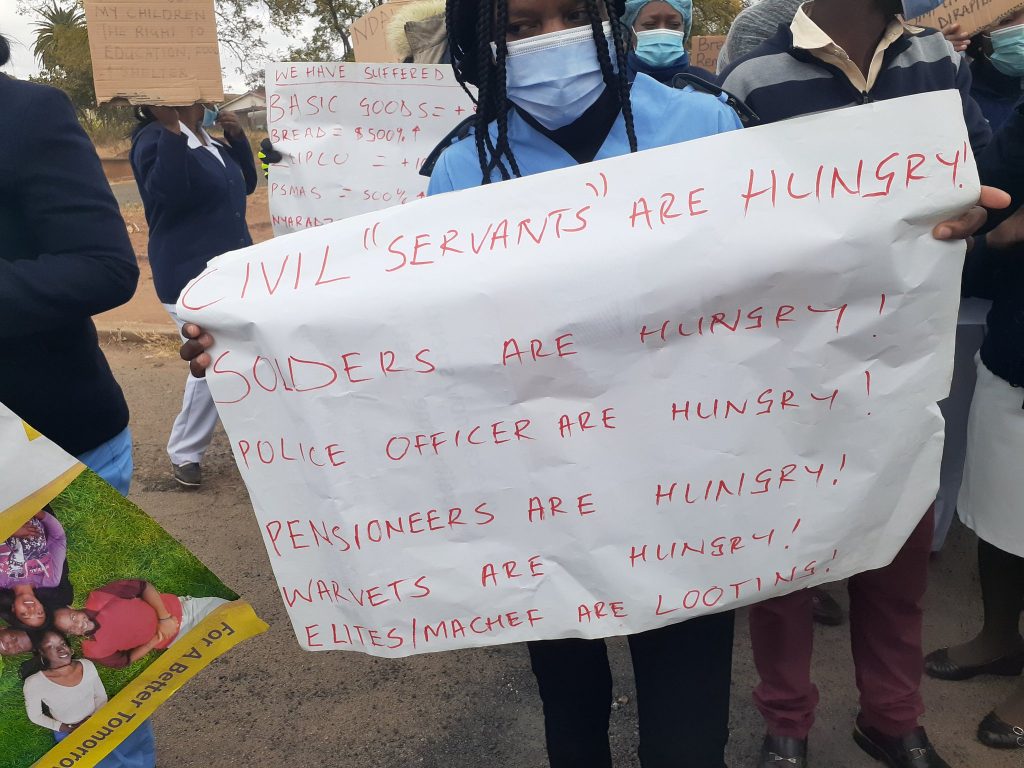 MY CHILDREN
THE RIGHT TO
EDUCATION,
SHELTER
WE HAVE SUFFERED
BASIC GOODS = +
BREAD = $500% ↑
= +10
PSMAS = 500% ↑
CIVIL "SERVANTS" ARE HUNGRY!
SOLDERS ARE HUNGRY!
POLICE OFFICER ARE HUNGRY!
PENSIONEERS ARE HUNGRY!
WARVETS ARE HUNGRY!
ELITES/MACHEF ARE LOOTING!
For A Better Tomorrow